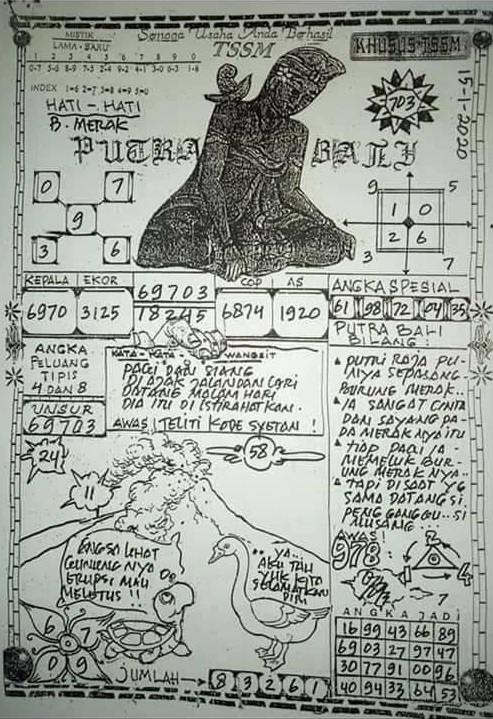 MISTIK
LAMA - BARU
Semoga Usaha Anda Berhasil
TSSM
KHUSUS TSSM
1 2 3 4 5 6 7 8 9 0
INDEX 1=6 2=7 3=8 4=9 5=0
HATI - HATI
B. MERAK
703
15-1-2020
PUTRA BALI
0 7
9
3 6
9 5
1 0
2 6
3 7
KEPALA EKOR
6970 3125
69703
78245
COP AS
6874 1920
ANGKA SPESIAL
61 98 72 04 35
PUTRA BALI
BILANG :
ANGKA
PELUANG
TIPIS
4 DAN 8
UNSUR
69703
KATA - KATA WANGSIT
PAGI DAN SIANG
DI AJAK JALAN DAN CARI
DATANG MALAM HARI
DIA ITU DI ISTIRAHATKAN.
AWAS! TELITI KODE SYETAN !
PUTRI RAJA PU-
NYA SEPASANG
BURUNG MERAK..
IA SANGAT CINTA
DAN SAYANG PA-
DA MERAK NYA ITU
TIAP PAGI IA
MEMELUK BUR-
UNG MERAK NYA..
TAPI DISAAT YG
SAMA DATANG SI
PENG GANGGU.. SI
MUSANG...
24
11
58
AWAS!
978
4
7
ANGSA LIHAT
GUNUNG NYA
ERUPSI MAU
MELETUS !!
.. YA...
AKU TAU
YUK KITA
SELAMATKAN
DIRI
6 7
0 9
JUMLAH → 8 3 2 6 1
ANGKA JADI
16 99 43 66 89
69 03 27 97 47
30 77 91 00 96
40 94 33 64 53